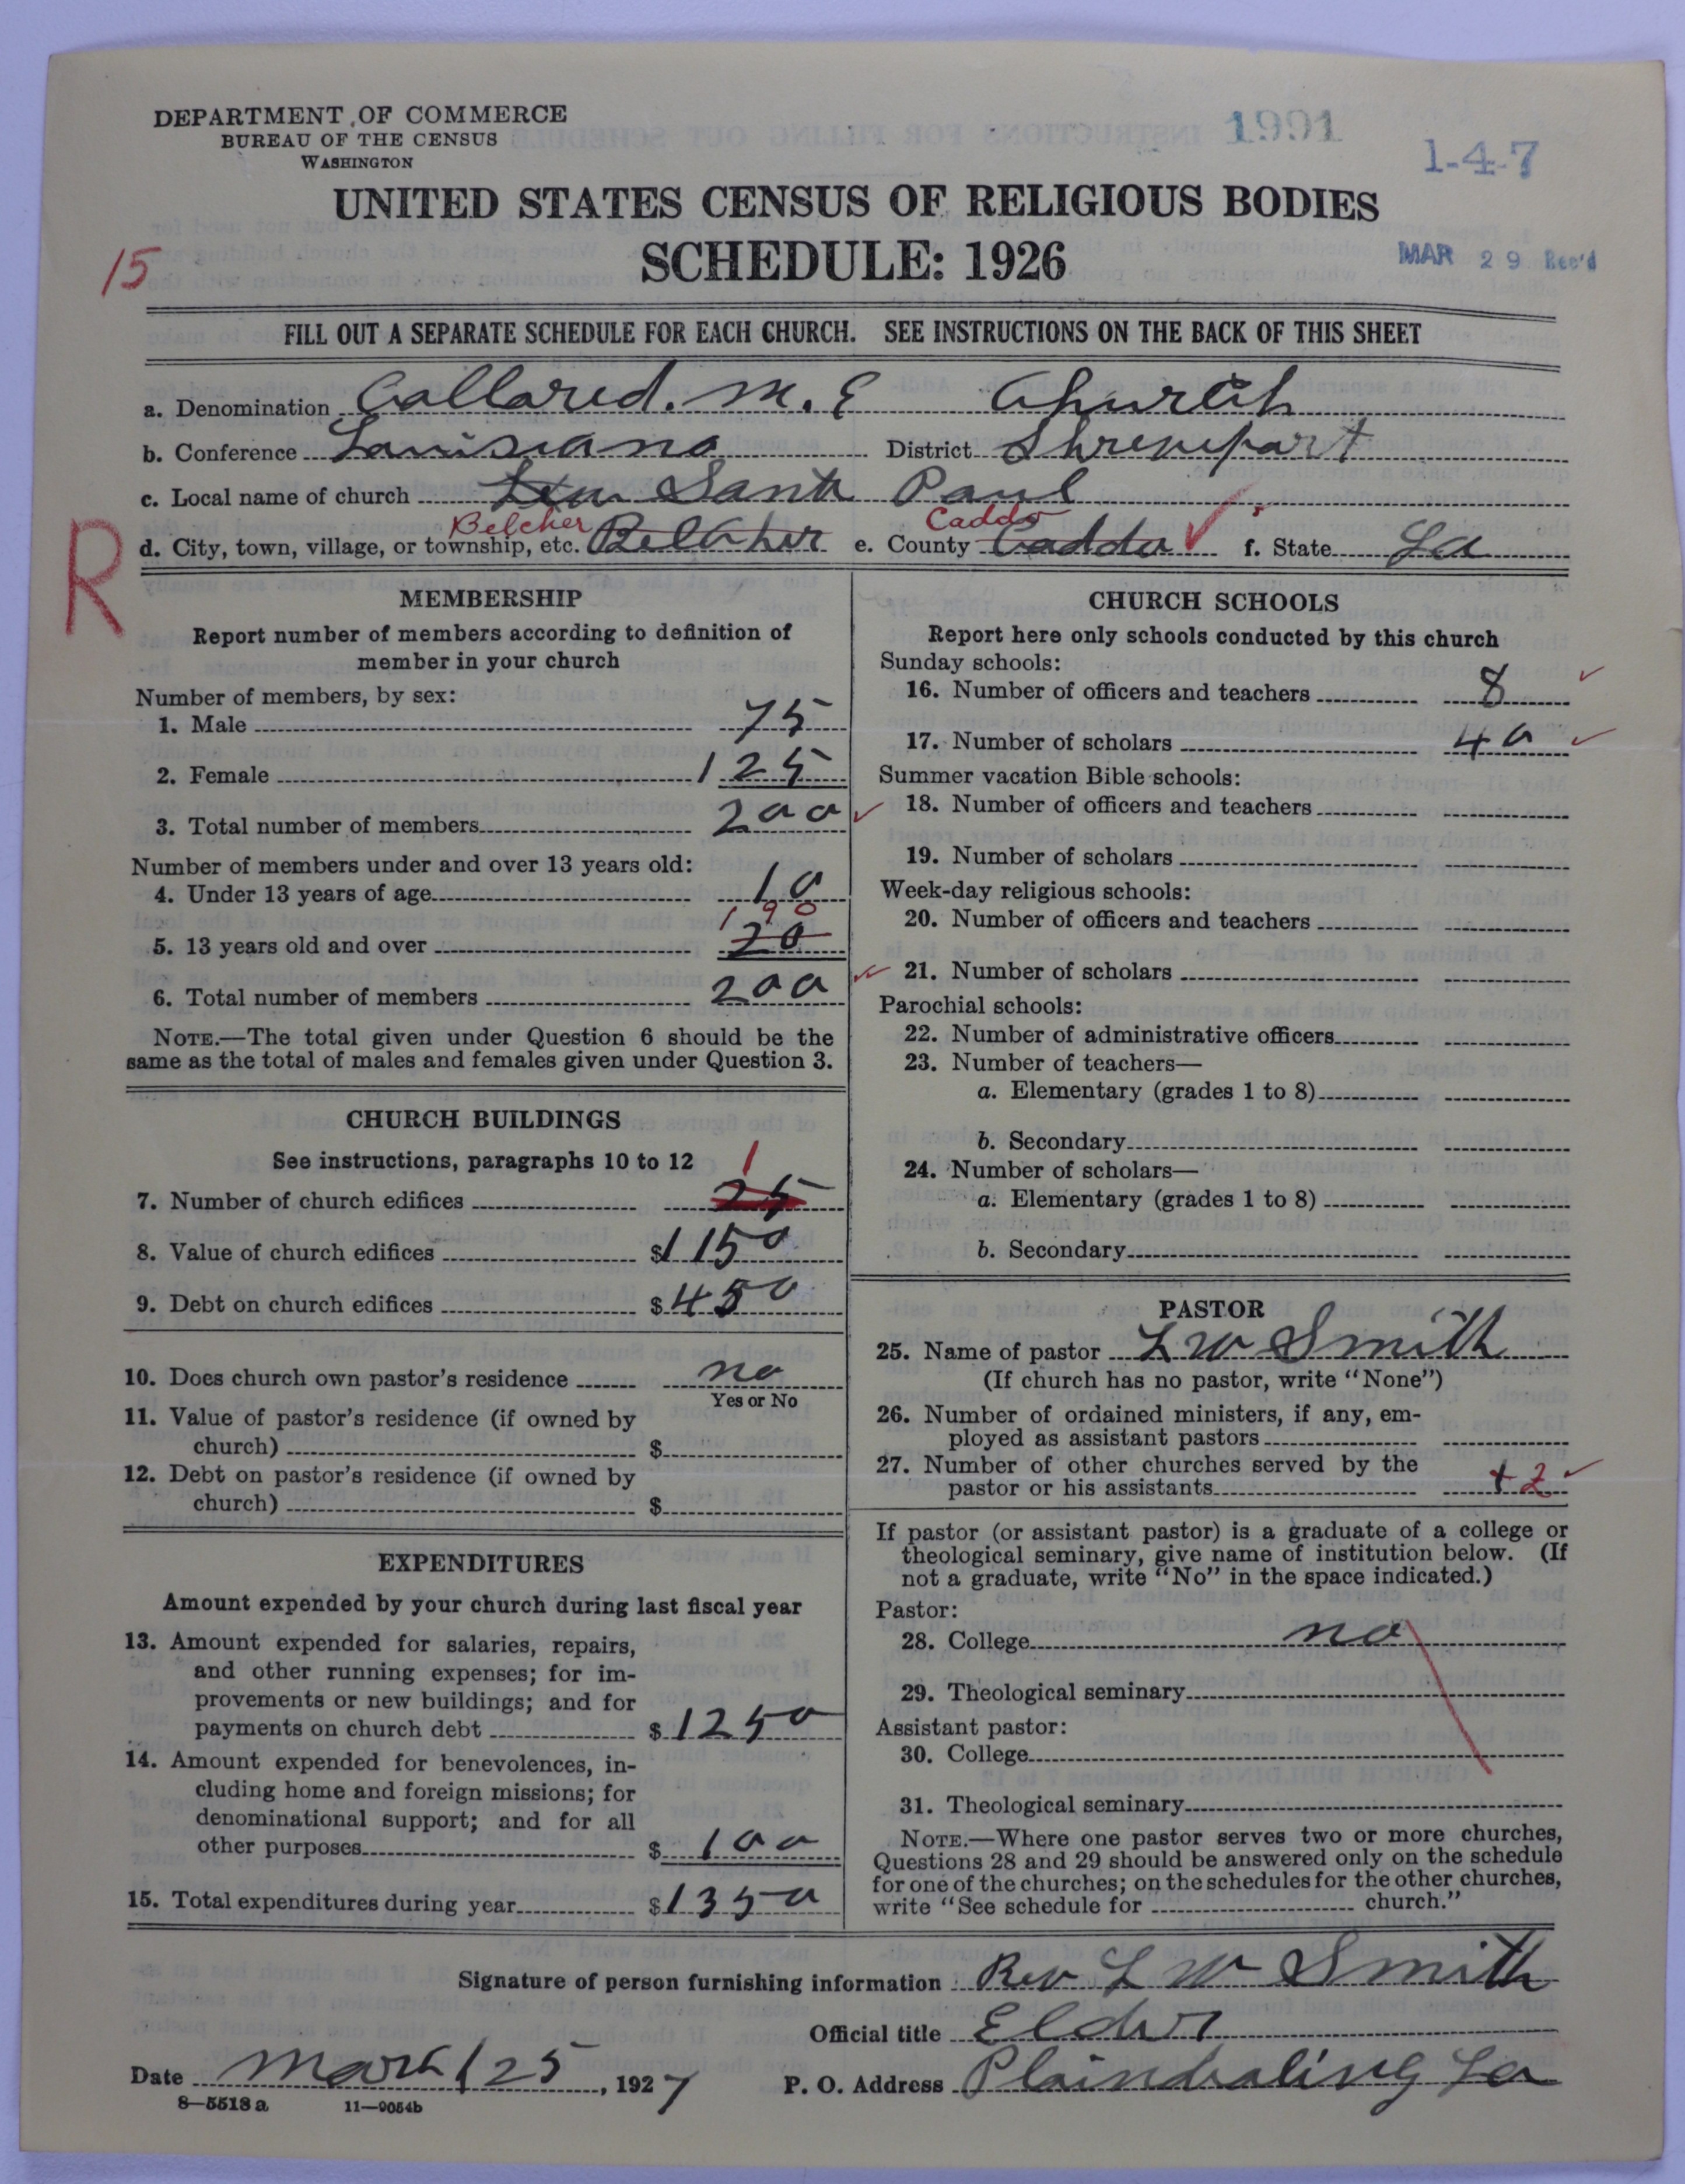 DEPARTMENT OF COMMERCE
BUREAU OF THE CENSUS
WASHINGTON
1991
1-4-7
UNITED STATES CENSUS OF RELIGIOUS BODIES
SCHEDULE: 1926
15
MAR 29 Rec'd
FILL OUT A SEPARATE SCHEDULE FOR EACH CHURCH. SEE INSTRUCTIONS ON THE BACK OF THIS SHEET
a. Denomination Collored. M. E Church
b. Conference Louisiana District Shreveport
c. Local name of church Santa Paul
d. City, town, village, or township, etc. Belcher Belcher e. County Caddo Caddo f. State La
R
MEMBERSHIP
Report number of members according to definition of
member in your church
Number of members, by sex:
1. Male 75
2. Female 125
3. Total number of members 200
Number of members under and over 13 years old:
4. Under 13 years of age 10
5. 13 years old and over 20 190
6. Total number of members 200
NOTE.—The total given under Question 6 should be the
same as the total of males and females given under Question 3.
CHURCH BUILDINGS
See instructions, paragraphs 10 to 12
7. Number of church edifices 25 1
8. Value of church edifices $1150
9. Debt on church edifices $450
10. Does church own pastor's residence no
Yes or No
11. Value of pastor's residence (if owned by
church) $
12. Debt on pastor's residence (if owned by
church) $
EXPENDITURES
Amount expended by your church during last fiscal year
13. Amount expended for salaries, repairs,
and other running expenses; for im-
provements or new buildings; and for
payments on church debt $1250
14. Amount expended for benevolences, in-
cluding home and foreign missions; for
denominational support; and for all
other purposes $100
15. Total expenditures during year $1350
CHURCH SCHOOLS
Report here only schools conducted by this church
Sunday schools:
16. Number of officers and teachers 8
17. Number of scholars 40
Summer vacation Bible schools:
18. Number of officers and teachers
19. Number of scholars
Week-day religious schools:
20. Number of officers and teachers
21. Number of scholars
Parochial schools:
22. Number of administrative officers
23. Number of teachers—
a. Elementary (grades 1 to 8)
b. Secondary
24. Number of scholars—
a. Elementary (grades 1 to 8)
b. Secondary
PASTOR
25. Name of pastor L W Smith
(If church has no pastor, write "None")
26. Number of ordained ministers, if any, em-
ployed as assistant pastors
27. Number of other churches served by the
pastor or his assistants 2
If pastor (or assistant pastor) is a graduate of a college or
theological seminary, give name of institution below. (If
not a graduate, write "No" in the space indicated.)
Pastor:
28. College no
29. Theological seminary
Assistant pastor:
30. College
31. Theological seminary
NOTE.—Where one pastor serves two or more churches,
Questions 28 and 29 should be answered only on the schedule
for one of the churches; on the schedules for the other churches,
write "See schedule for church."
Signature of person furnishing information Rev L W Smith
Official title Elder
Date March 25, 1927 P. O. Address Plaindealing La
8—5518 a 11—9054b